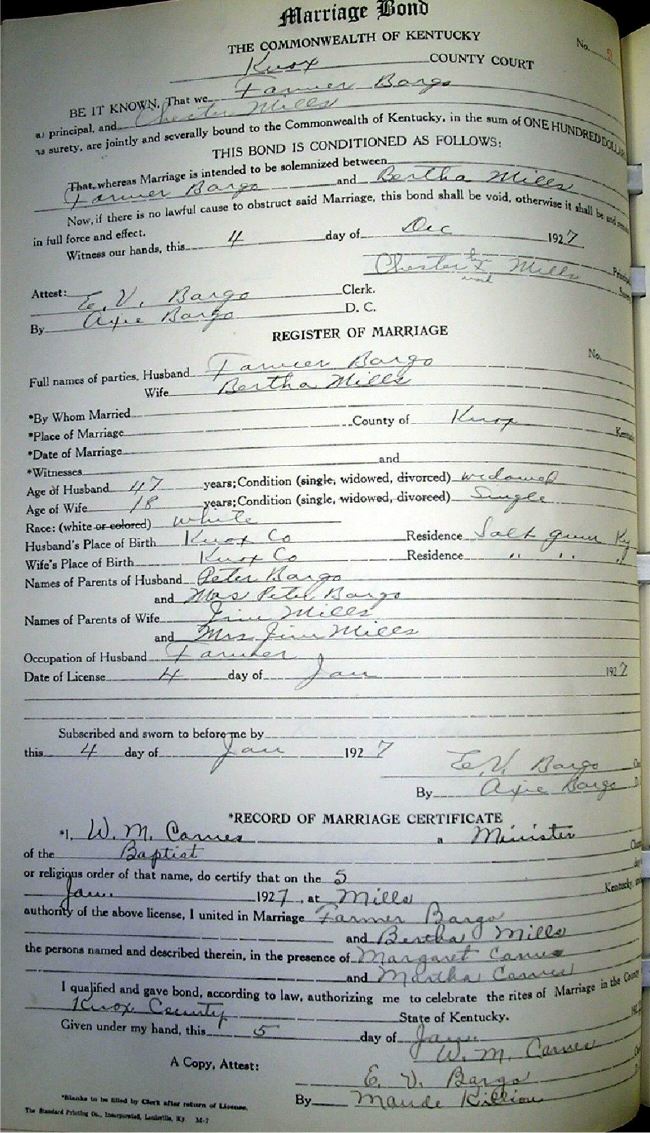 Marriage Bond
No.
THE COMMONWEALTH OF KENTUCKY
Knox COUNTY COURT
BE IT KNOWN, That we Farmer Bargo
principal, and Chester Mills
as surety, are jointly and severally bound to the Commonwealth of Kentucky, in the sum of ONE HUNDRED DOLLARS
THIS BOND IS CONDITIONED AS FOLLOWS:
That, whereas Marriage is intended to be solemnized between
Farmer Bargo and Bertha Mills
Now, if there is no lawful cause to obstruct said Marriage, this bond shall be void, otherwise it shall be and
in full force and effect.
Witness our hands, this 4 day of Dec 1927
Principal
Chester X Mills
Attest: E. V. Bargo Clerk.
By Axie Bargo D. C.
REGISTER OF MARRIAGE
No.
Full names of parties, Husband Farmer Bargo
Wife Bertha Mills
*By Whom Married
*Place of Marriage County of Knox Kentucky
*Date of Marriage
*Witnesses and
Age of Husband 47 years; Condition (single, widowed, divorced) widowed
Age of Wife 18 years; Condition (single, widowed, divorced) Single
Race: (white or colored) white
Husband's Place of Birth Knox Co Residence Salt Gum Ky
Wife's Place of Birth Knox Co Residence " " "
Names of Parents of Husband Peter Bargo
and Mrs Peter Bargo
Names of Parents of Wife Jim Mills
and Mrs Jim Mills
Occupation of Husband Farmer
Date of License 4 day of Jan 1927
Subscribed and sworn to before me by
this 4 day of Jan 1927
E. V. Bargo
By Axie Bargo
*RECORD OF MARRIAGE CERTIFICATE
*I, W. M. Carnes a Minister
of the Baptist
or religious order of that name, do certify that on the 5
Jan. 1927, at Mills Kentucky,
authority of the above license, I united in Marriage Farmer Bargo
and Bertha Mills
the persons named and described therein, in the presence of Margaret Carnes
and Martha Carnes
I qualified and gave bond, according to law, authorizing me to celebrate the rites of Marriage in the County
Knox County State of Kentucky.
Given under my hand, this 5 day of Jan.
W. M. Carnes
A Copy, Attest:
E. V. Bargo
By Maude Killion
*Blanks to be filled by Clerk after return of License.
The Standard Printing Co., Incorporated, Louisville, Ky. M-7